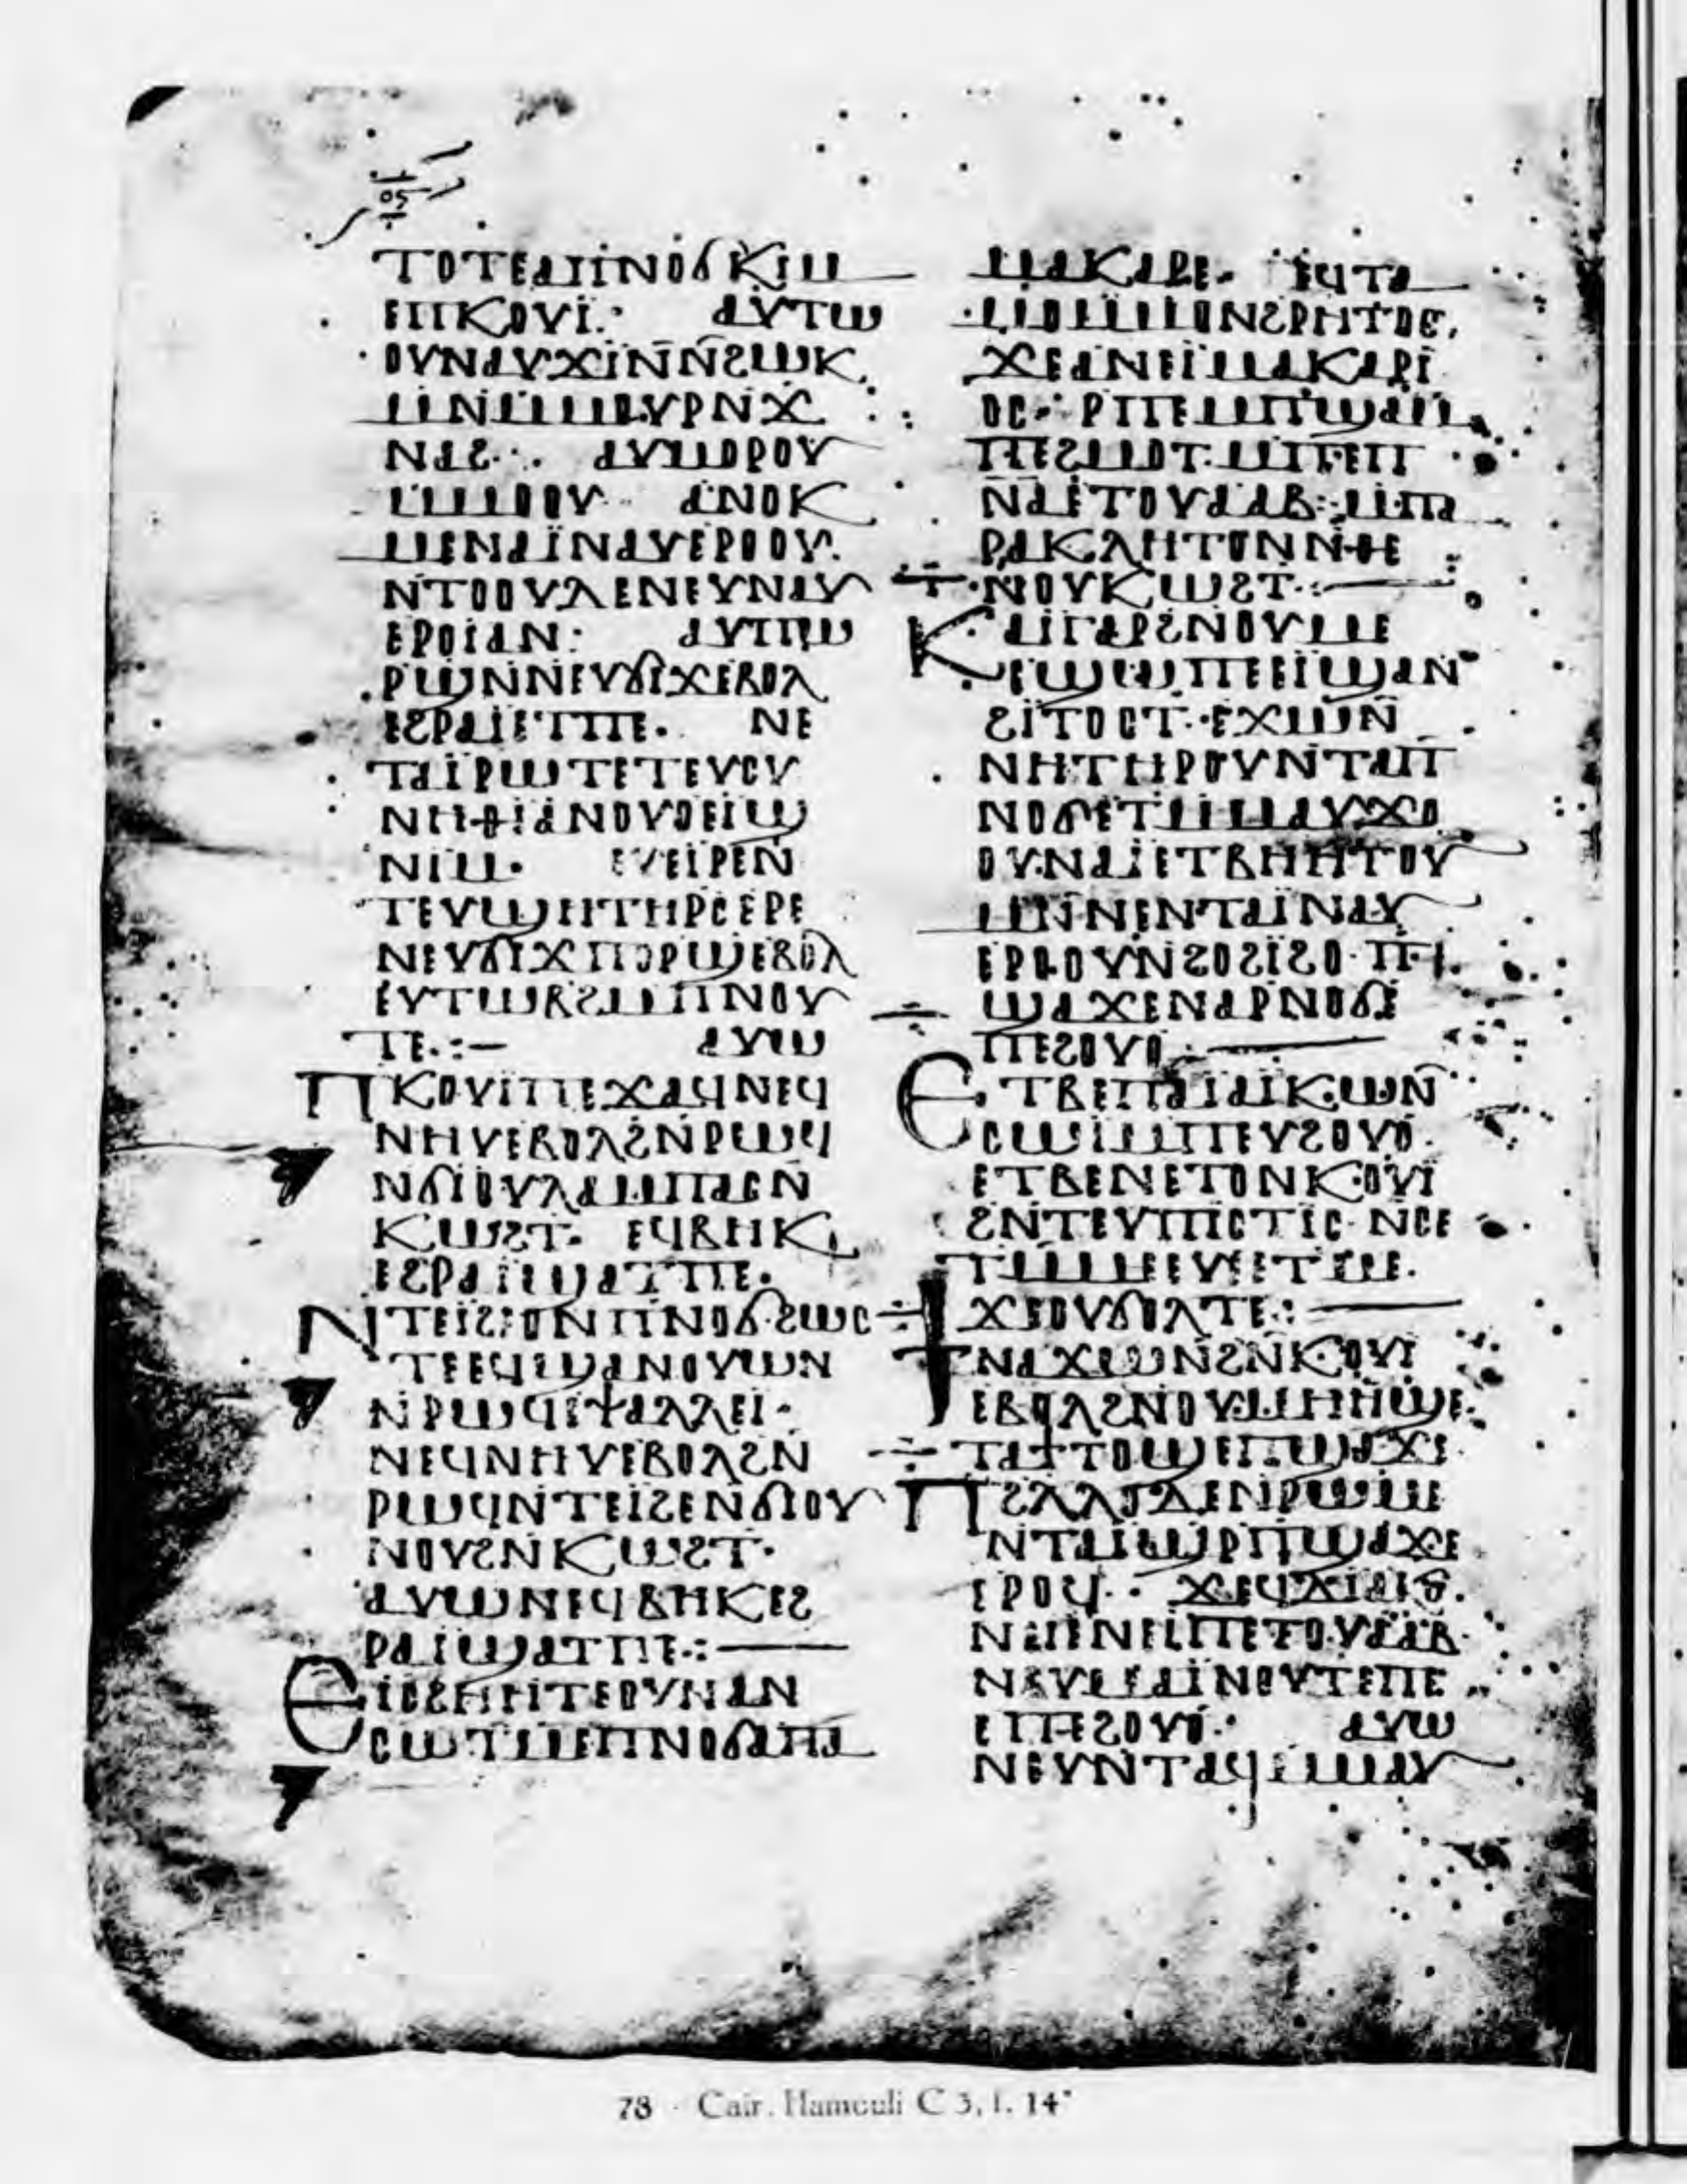 ⲟⲋ
ⲧⲟⲧⲉⲁⲡⲛⲟϭⲕⲓⲙ
ⲉⲡⲕⲟⲩⲓ̈· ⲁⲩⲧⲱ
ⲟⲩⲛⲁⲩϫⲓⲛ̄ⲛ̄ϩⲱⲕ
ⲙⲛⲙⲙⲟⲩⲣⲛϫ
ⲛⲁϩ· ⲁⲩⲙⲟⲣⲟⲩ
ⲙⲙⲟⲟⲩ ⲁⲛⲟⲕ
ⲙⲉⲛⲁⲓ̈ⲛⲁⲩⲉⲣⲟⲟⲩ·
ⲛⲧⲟⲟⲩⲇⲉⲛⲉⲩⲛⲁⲩ
ⲉⲣⲟⲓⲁⲛ: ⲁⲩⲡⲱ
ⲣϣⲛⲛⲉⲩϭⲓϫⲉⲃⲟⲗ
ⲉϩⲣⲁⲓⲉⲧⲡⲉ· ⲛⲉ
ⲧⲁⲓ̈ⲣⲱⲧⲉⲧⲉⲩⲥⲩ
ⲛⲏⲑⲓⲁⲛⲟⲩⲟⲉⲓϣ
ⲛⲓⲙ· ⲉⲩⲉⲓⲣⲉⲛ
ⲧⲉⲩϣⲏⲧⲏⲣⲥⲉⲣⲉ
ⲛⲉⲩϭⲓϫⲡⲟⲣϣⲉⲃⲟⲗ
ⲉⲩⲧⲱⲃϩⲙⲡⲛⲟⲩ
ⲧⲉ·:— ⲁⲩⲱ
ⲡⲕⲟⲩⲓⲡⲉϫⲁϥⲛⲉϥ
ⲛⲏⲩⲉⲃⲟⲗϩⲛⲣⲱϥ
ⲛϭⲓⲟⲩⲗⲁⲙⲡⲁⲥⲛ̄
ⲕⲱϩⲧ· ⲉϥⲃⲏⲕ
ⲉϩⲣⲁⲓϣⲁⲧⲡⲉ·
ⲛⲧⲉⲓϩⲉⲟⲛⲡⲛⲟϭϩⲱⲥ
ⲧⲉⲉϥϣⲁⲛⲟⲩⲱⲛ
ⲛⲣⲱϥⲉⲯⲁⲗⲗⲉⲓ·
ⲛⲉϥⲛⲏⲩⲉⲃⲟⲗϩⲛ
ⲣⲱϥⲛⲧⲉⲓϩⲉⲛϭⲓⲟⲩ
ⲛⲟⲩϩⲛⲕⲱϩⲧ·
ⲁⲩⲱⲛⲉϥⲃⲏⲕⲉϩ
ⲣⲁⲓϣⲁⲧⲡⲉ·:——
ⲉⲓⲥϩⲏⲏⲧⲉⲟⲩⲛⲁⲛ
ⲥⲱⲧⲙⲉⲡⲛⲟϭⲁⲡⲁ
ⲙⲁⲕⲁⲣⲉ· ⲉϥⲧⲁ
ⲙⲟⲙⲙⲟⲛϩⲣⲏⲧⲟⲥ,
ϫⲉⲁⲛⲉⲓⲙⲁⲕⲁⲣⲓ
ⲟⲥ· ⲣⲡⲉⲙⲡϣⲁⲙ
ⲡⲉϩⲙⲟⲧ·ⲙⲡⲉⲡ
ⲛ̄ⲁⲉⲧⲟⲩⲁⲁⲃ:ⲙⲡⲁ
ⲣⲁⲕⲗⲏⲧⲟⲛⲛⲑⲉ
ⲛⲟⲩⲕⲱϩⲧ·:——
ⲕⲁⲓⲅⲁⲣϩⲛⲟⲩⲙⲉ
ⲉϣⲱⲡⲉⲉⲓϣⲁⲛ
ϩⲓⲧⲟⲟⲧ·ⲉϫⲱⲛ
ⲛⲏⲧⲏⲣⲟⲩⲛⲧⲁⲡ
ⲛⲟϭⲉⲧⲙⲙⲁⲩϫⲟ
ⲟⲩ·ⲛⲁⲓⲉⲧⲃⲏⲏⲧⲟⲩ
ⲙⲛⲛⲉⲛⲧⲁⲓ̈ⲛⲁⲩ
ⲉⲣⲟⲟⲩⲛϩⲟϩⲓϩⲟ·ⲡⲉⲓ
ϣⲁϫⲉⲛⲁⲣⲛⲟϭⲉ
ⲡⲉϩⲟⲩⲟ:——
ⲉⲧⲃⲉⲡⲁⲓⲁⲓ̈ⲕⲱⲛ̄
ⲥⲱⲓⲙⲡⲉⲩϩⲟⲩⲟ·
ⲉⲧⲃⲉⲛⲉⲧⲟⲛⲕⲟⲩⲓ
ϩⲛⲧⲉⲩⲡⲓⲥⲧⲓⲥ·ⲛⲥⲉ
ⲧⲙⲙⲉⲉⲩⲉⲉⲧⲙⲉ·
ϫⲉⲟⲩϭⲟⲗⲧⲉ:——
ϯⲛⲁϫⲱⲛϩⲛⲕⲟⲩⲓ
ⲉⲃⲟⲗϩⲛⲟⲩⲙⲏⲏϣⲉ·
ⲧⲁϯⲧⲟϣⲉⲡϣⲁϫⲉ
ⲡϩⲗⲗⲟⲇⲉⲛⲣⲱⲙⲉ
ⲛⲧⲁⲓϣⲣⲡϣⲁϫⲉ
ⲉⲣⲟϥ· ϫⲉϥϫⲓⲁⲉⲓⲥ
ⲛⲁⲡⲛⲉⲙⲡⲉⲧⲟⲩⲁⲁⲃ·
ⲛⲉⲩⲙⲁⲓⲛⲟⲩⲧⲉⲡⲉ
ⲉⲡⲉϩⲟⲩⲟ· ⲁⲩⲱ
ⲛⲉⲩⲛⲧⲁϥⲙⲙⲁⲩ
78 · Cair. Hamouli C 3, f. 14ᵛ